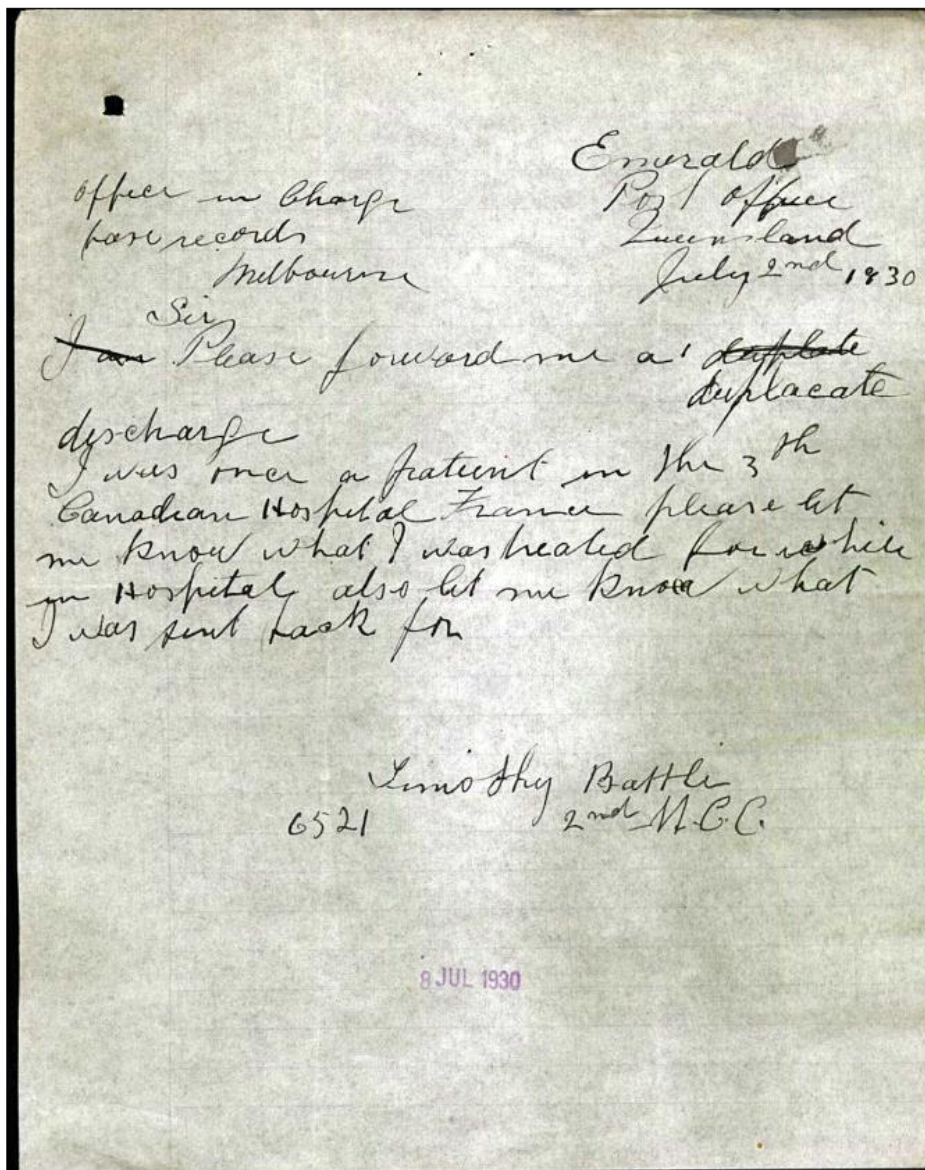 Emerald
Post office
Queensland
July 2nd 1930
officer in Charge
base records
Melbourne
Sir
I am Please forward me a duplate
duplacate
discharge
I was once a patient in the 3th
Canadian Hospital France please let
me know what I was treated for while
in Hospital also let me know what
I was sent back for
Timothy Battle
6521 2nd M.G.C.
8 JUL 1930